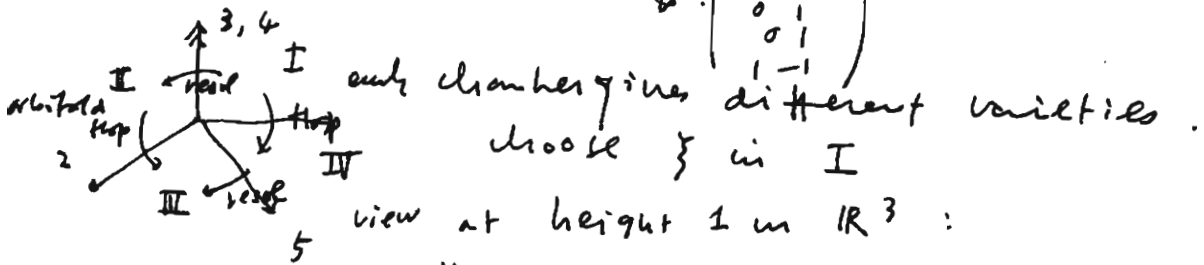 0 1
0 1
1 -1
3, 4
I
II
resol
each chamber gives different varieties.
orbifold
flop
flop
choose ξ in I
2
IV
III
resol
view at height 1 in ℝ³ :
5